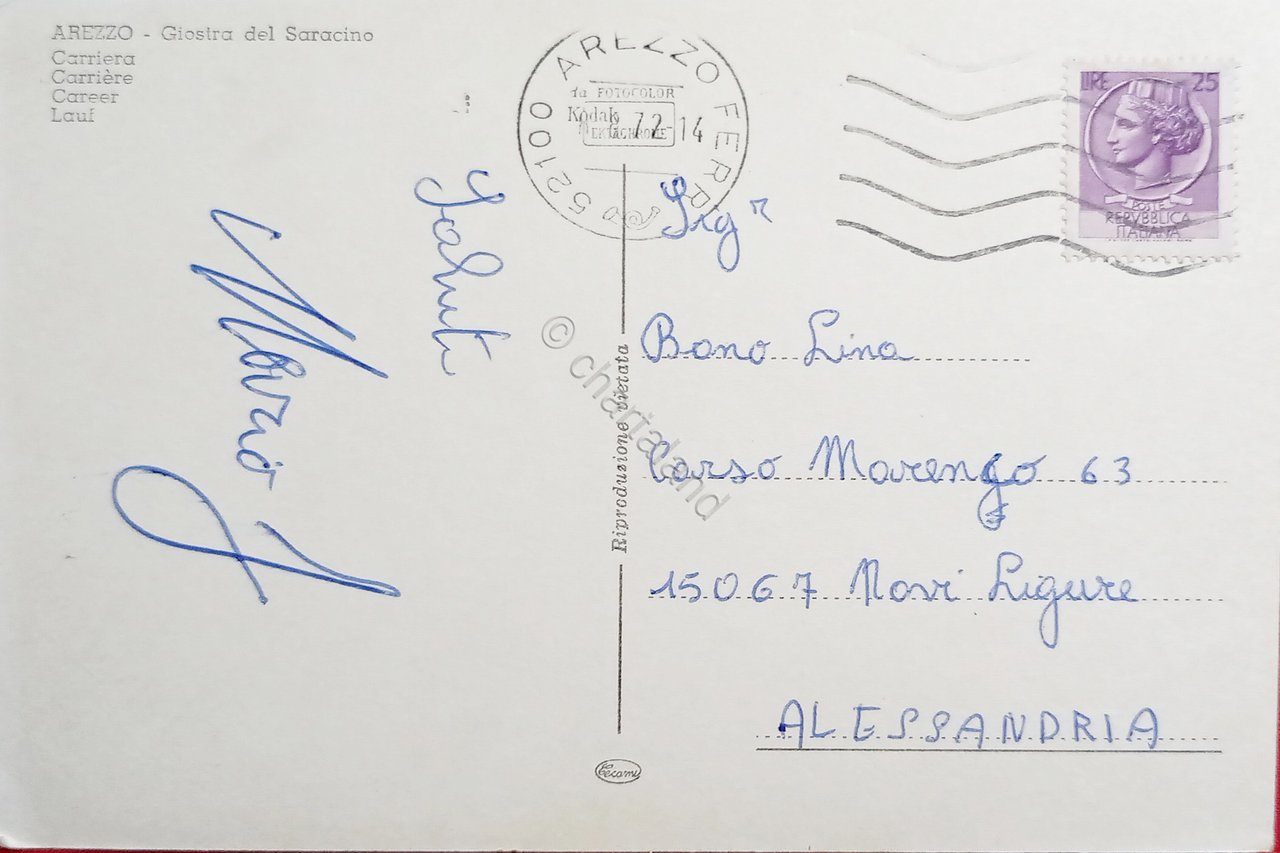 AREZZO - Giostra del Saracino
Carriera
Carrière
Career
Lauf
52100 AREZZO FERR
da FOTOCOLOR
Kodak
EKTACHROME
8 72 - 14
LIRE 25
POSTE
REPVBBLICA
ITALIANA
Saluti
Sigr
Bono Lina
Corso Marengo 63
15067 Novi Ligure
ALESSANDRIA
Riproduzione vietata
© chartaland
Cecami